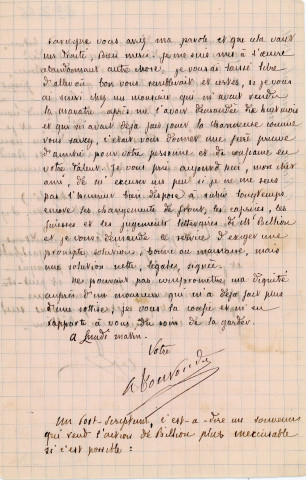 lorsque vous avez ma parole et que cela vaut
un traité, bien merci. je me suis mis à l'œuvre
abandonnant autre chose. je vous ai laissé libre
d'aller où bon vous semblerait et certes, si je vous
ai suivi chez un monsieur qui m'avait rendu
la manatre après me l'avoir demandée dix huit mois
et qui m'avait déjà fait jouer la chanteuse comme
vous savez, c'était vous donner une forte preuve
d'amitié pour votre personne et de confiance en
votre talent. je vous prie aujourd'hui, mon cher
ami, de m'excuser un peu si je ne me sens
pas l'humeur bien disposée à subir longtemps
encore les changements de front, les caprices, les
finesses et les jugements littéraires de Mr Billion
et je vous demande le service d'exiger une
prompte solution, bonne ou mauvaise, mais
une solution nette, légale, signée.
ne pouvant pas compromettre ma dignité
auprès d'un monsieur qui m'a déjà fait plus
d'une sottise, je vous la confie et m'en
rapporte à vous du soin de la garder.
a lundi matin.
Votre
Un Post-Scriptum, c'est-à-dire un souvenir
qui rend l'action de Billion plus inexcusable
si c'est possible :